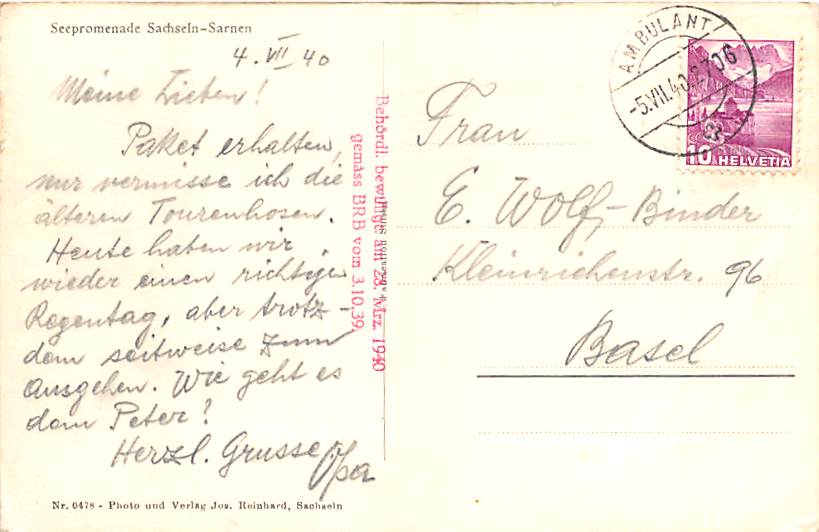 Seepromenade Sachseln-Sarnen
4. VII 40
Meine Lieben!
Paket erhalten,
nur vermisse ich die
älteren Tourenhosen.
Heute haben wir
wieder einen richtigen
Regentag, aber trotz-
dem zeitweise zum
Ausgehen. Wie geht es
dem Peter?
Herzl. Grusse Opa
Nr. 0478 - Photo und Verlag Jos. Reinhard, Sachseln
Behördl. bewilligt am 28. Mrz. 1940
gemäss BRB vom 3.10.39.
AMBULANT
-5.VII.40
10 HELVETIA
Frau
E. Wolf-Binder
Kleinrichenstr. 96
Basel